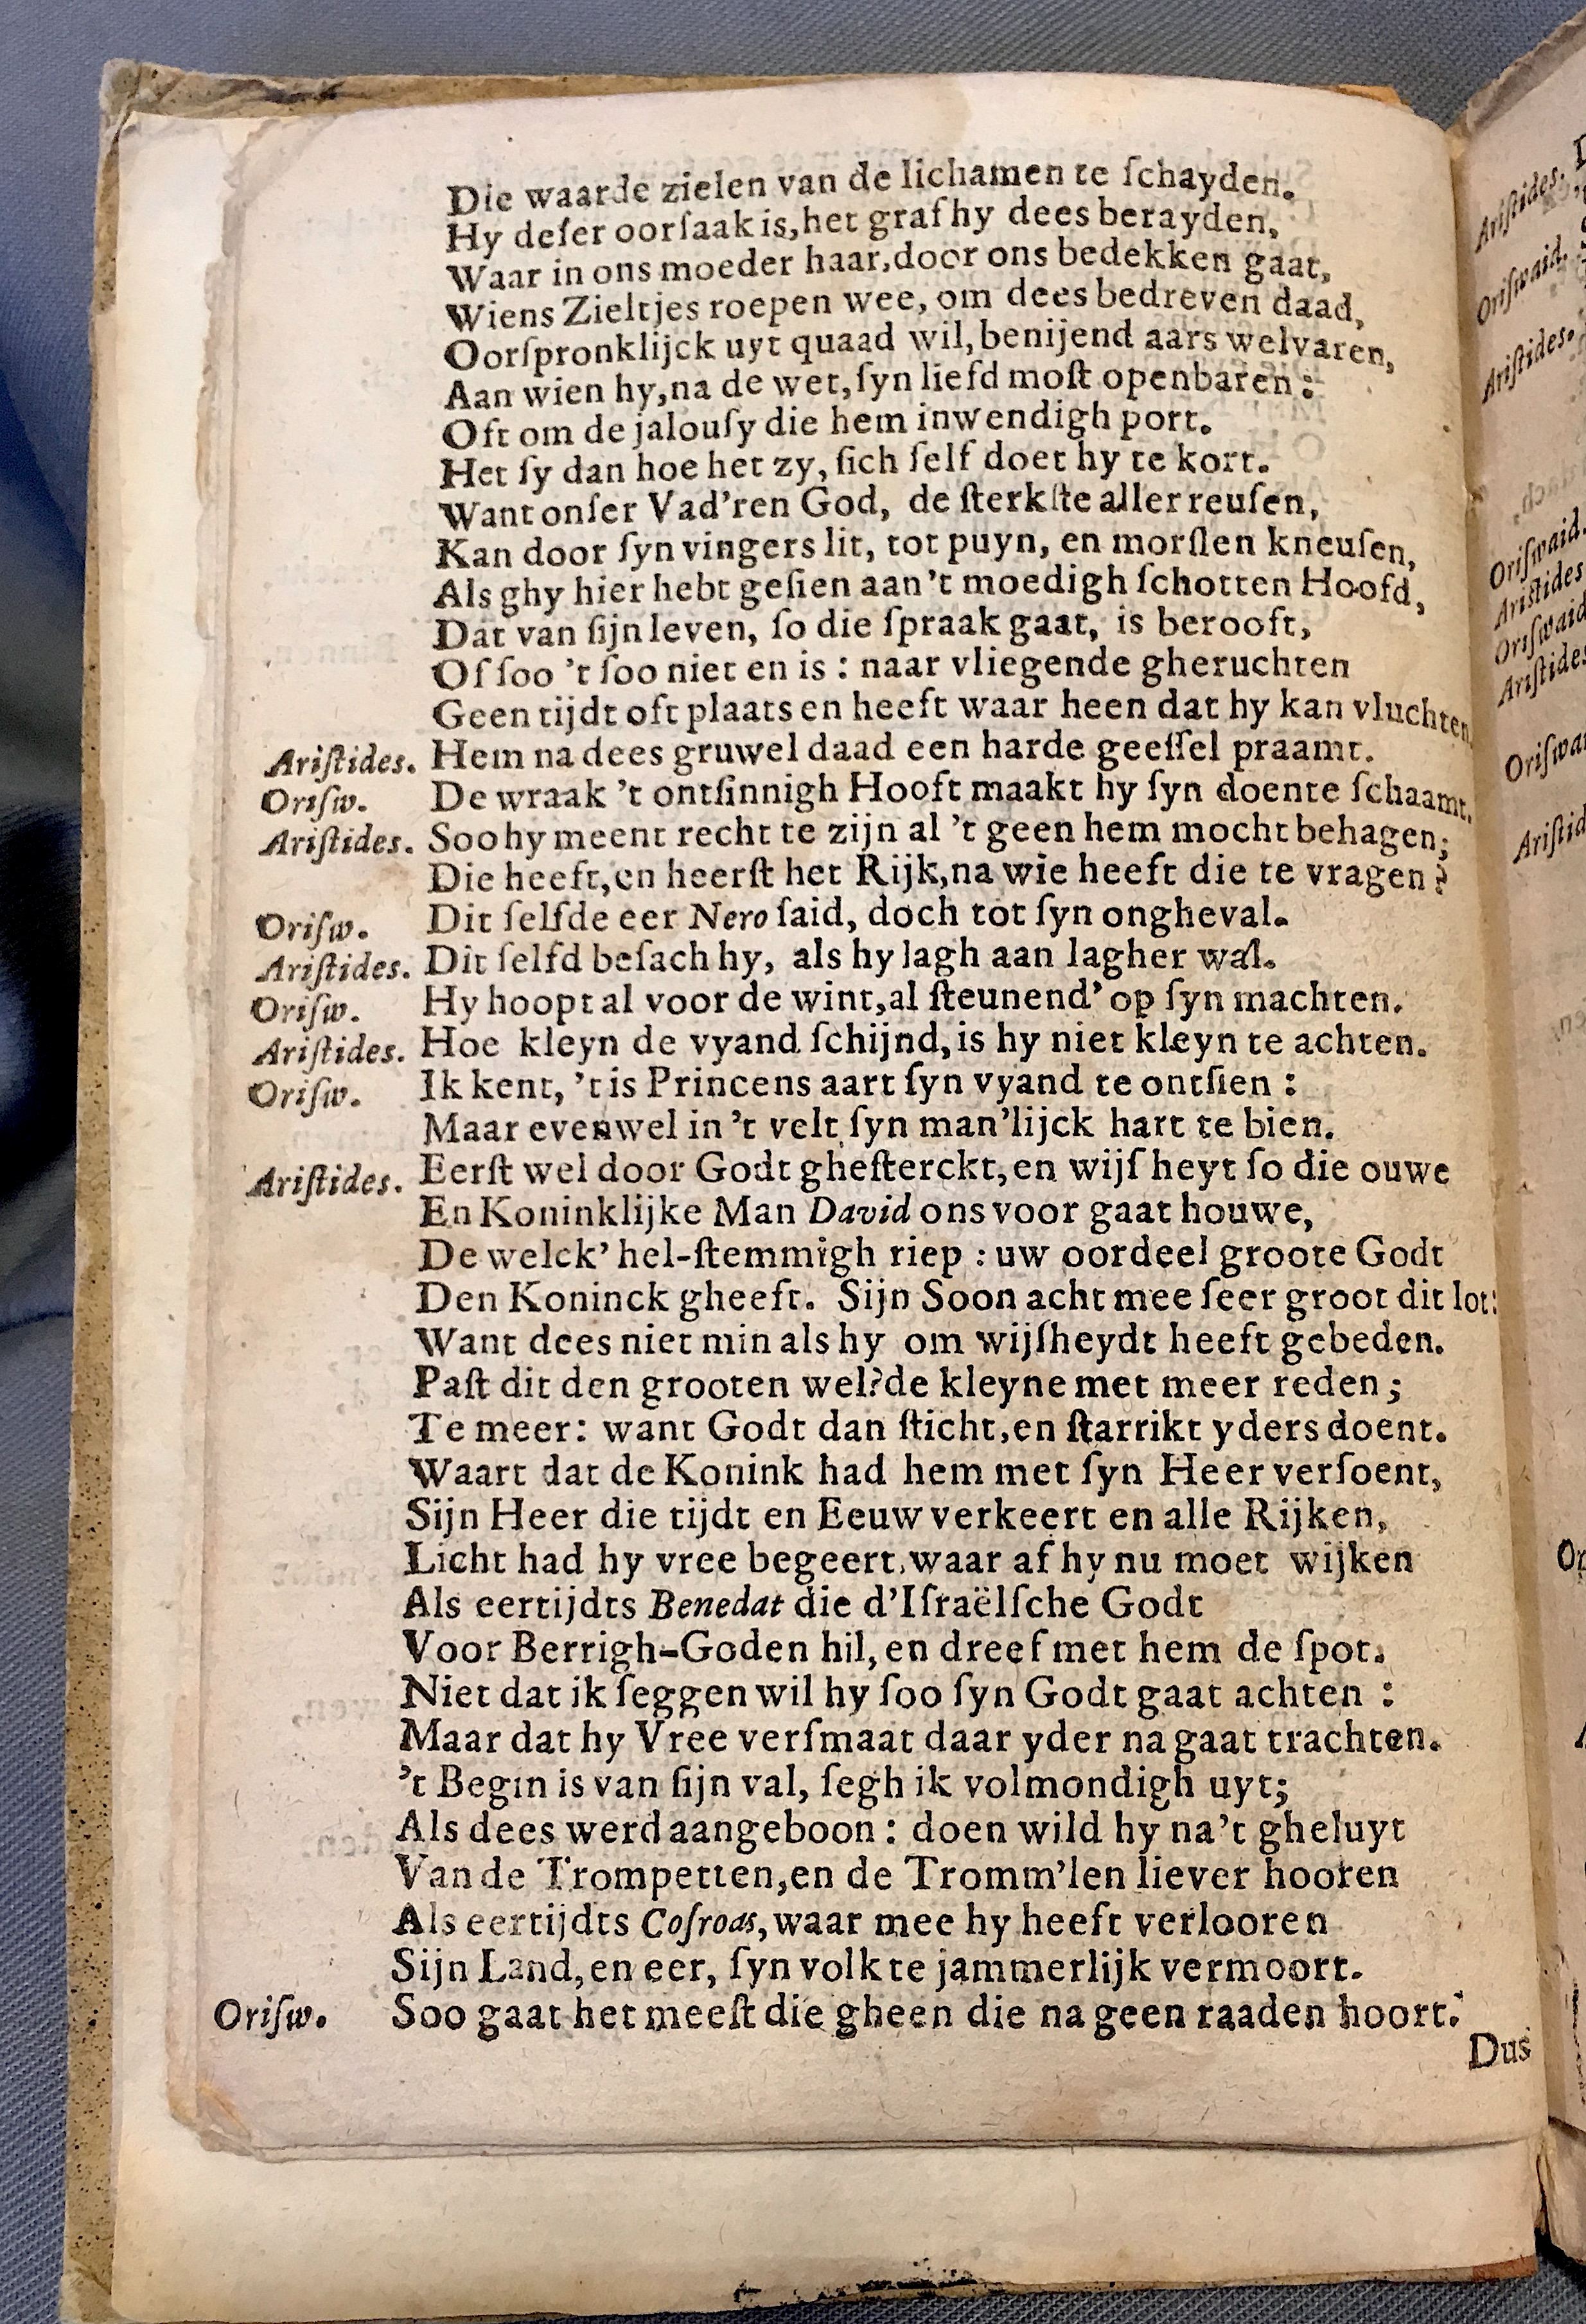 Die waarde zielen van de lichamen te ſchayden.
Hy deſer oorſaak is, het graf hy dees berayden,
Waar in ons moeder haar, door ons bedekken gaat,
Wiens Zieltjes roepen wee, om dees bedreven daad,
Oorſpronklijck uyt quaad wil, benijend aars welvaren,
Aan wien hy, na de wet, ſyn liefd moſt openbaren:
Oft om de jalouſy die hem inwendigh port.
Het ſy dan hoe het zy, ſich ſelf doet hy te kort.
Want onſer Vad'ren God, de ſterkſte aller reuſen,
Kan door ſyn vingers lit, tot puyn, en morſlen kneuſen,
Als ghy hier hebt geſien aan 't moedigh ſchotten Hoofd,
Dat van ſijn leven, ſo die ſpraak gaat, is berooft,
Of ſoo 't ſoo niet en is: naar vliegende gheruchten
Geen tijdt oft plaats en heeft waar heen dat hy kan vluchten
Ariſtides. Hem na dees gruwel daad een harde geeſſel praamt.
Oriſw. De wraak 't ontſinnigh Hooft maakt hy ſyn doente ſchaamt.
Ariſtides. Soo hy meent recht te zijn al 't geen hem mocht behagen;
Die heeft, en heerſt het Rijk, na wie heeft die te vragen?
Oriſw. Dit ſelfde eer Nero ſaid, doch tot ſyn ongheval.
Ariſtides. Dit ſelfd beſach hy, als hy lagh aan lagher wal.
Oriſw. Hy hoopt al voor de wint, al ſteunend' op ſyn machten.
Ariſtides. Hoe kleyn de vyand ſchijnd, is hy niet kleyn te achten.
Oriſw. Ik kent, 't is Princens aart ſyn vyand te ontſien:
Maar evenwel in 't velt ſyn man'lijck hart te bien.
Ariſtides. Eerſt wel door Godt gheſterckt, en wijſ heyt ſo die ouwe
En Koninklijke Man David ons voor gaat houwe,
De welck' hel-ſtemmigh riep: uw oordeel groote Godt
Den Koninck gheeft. Sijn Soon acht mee ſeer groot dit lot:
Want dees niet min als hy om wijſheydt heeft gebeden.
Paſt dit den grooten wel? de kleyne met meer reden;
Te meer: want Godt dan ſticht, en ſtarrikt yders doent.
Waart dat de Konink had hem met ſyn Heer verſoent,
Sijn Heer die tijdt en Eeuw verkeert en alle Rijken,
Licht had hy vree begeert, waar af hy nu moet wijken
Als eertijdts Benedat die d'Iſraëlſche Godt
Voor Berrigh-Goden hil, en dreef met hem de ſpot.
Niet dat ik ſeggen wil hy ſoo ſyn Godt gaat achten:
Maar dat hy Vree verſmaat daar yder na gaat trachten.
't Begin is van ſijn val, ſegh ik volmondigh uyt;
Als dees werd aangeboon: doen wild hy na 't gheluyt
Van de Trompetten, en de Tromm'len liever hooren
Als eertijdts Coſroas, waar mee hy heeft verlooren
Sijn Land, en eer, ſyn volk te jammerlijk vermoort.
Oriſw. Soo gaat het meeſt die gheen die na geen raaden hoort.
Dus
Ariſtides.
Oriſwaid.
Ariſtides.
Oriſwaid.
Ariſtides
Oriſwaid
Ariſtides